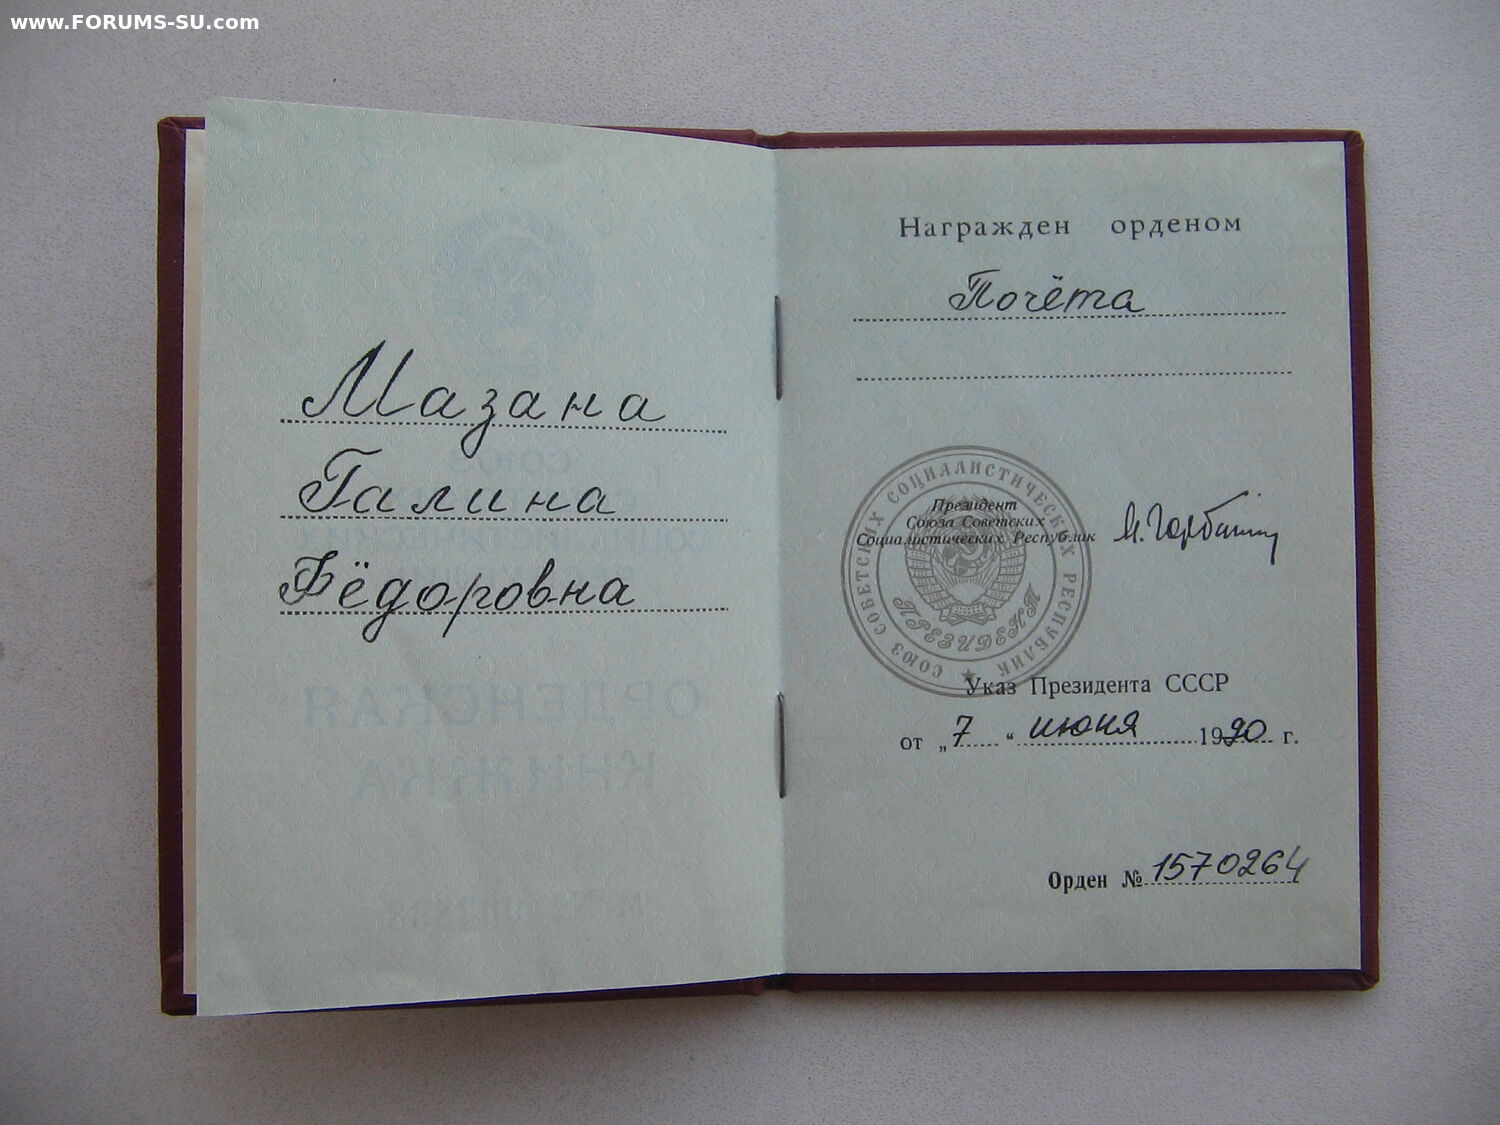 www.FORUMS-SU.com
Мазана
Галина
Фёдоровна
Награжден орденом
Почёта
СОЮЗ СОВЕТСКИХ СОЦИАЛИСТИЧЕСКИХ РЕСПУБЛИК
ПРЕЗИДЕНТ
Президент
Союза Советских
Социалистических Республик
М. Горбачёв
Указ Президента СССР
от „7“ июня 1990 г.
Орден № 1570264
СОЮЗ
ОРДЕНСКАЯ
КНИЖКА